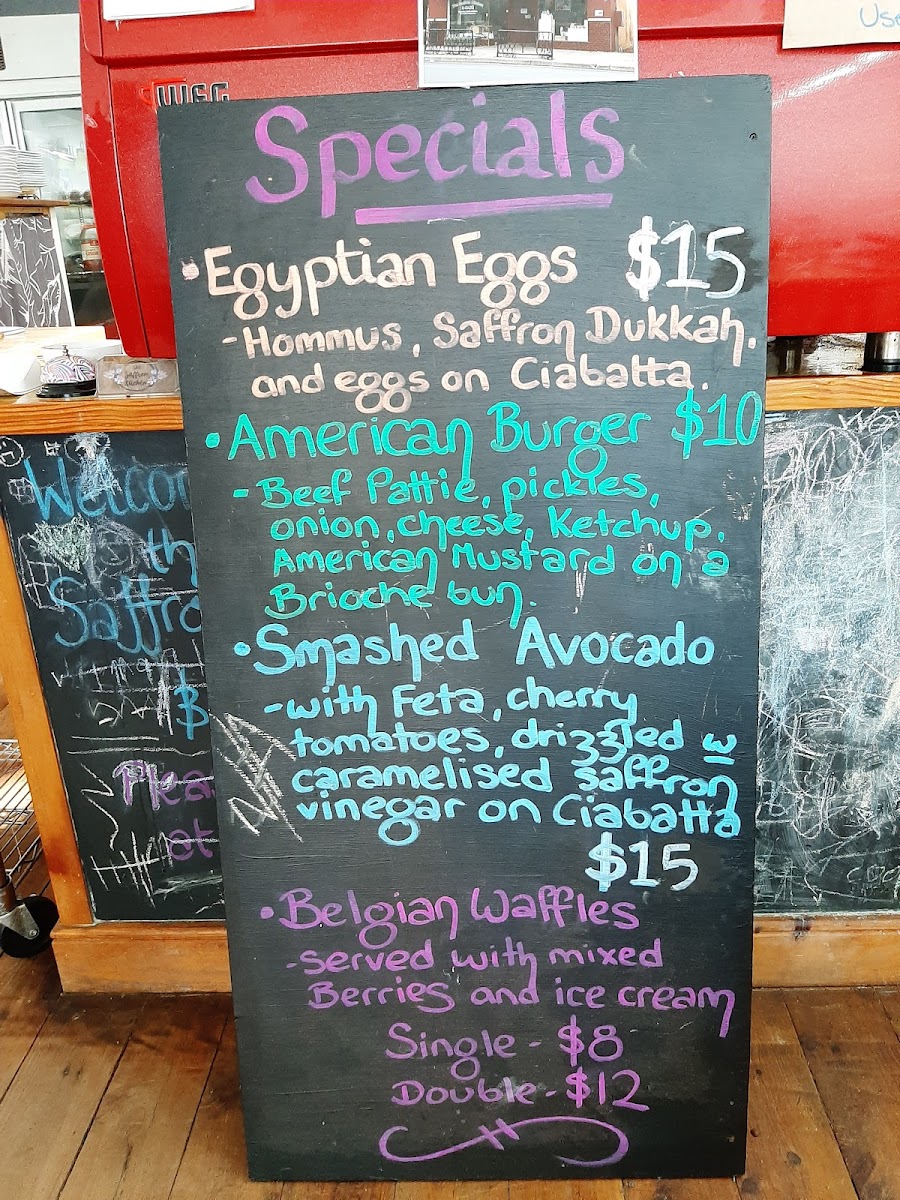 Use
WEGA
Specials
• Egyptian Eggs $15
- Hommus, Saffron Dukkah,
and eggs on Ciabatta.
• American Burger $10
- Beef Pattie, pickles,
onion, cheese, Ketchup,
American Mustard on a
Brioche bun.
• Smashed Avocado
- with Feta, cherry
tomatoes, drizzled w
caramelised saffron
vinegar on Ciabatta
$15
• Belgian Waffles
- served with mixed
Berries and ice cream
Single - $8
Double - $12
Saffron
Kitchen
Welcom
th
Saffro
B
Plea
at